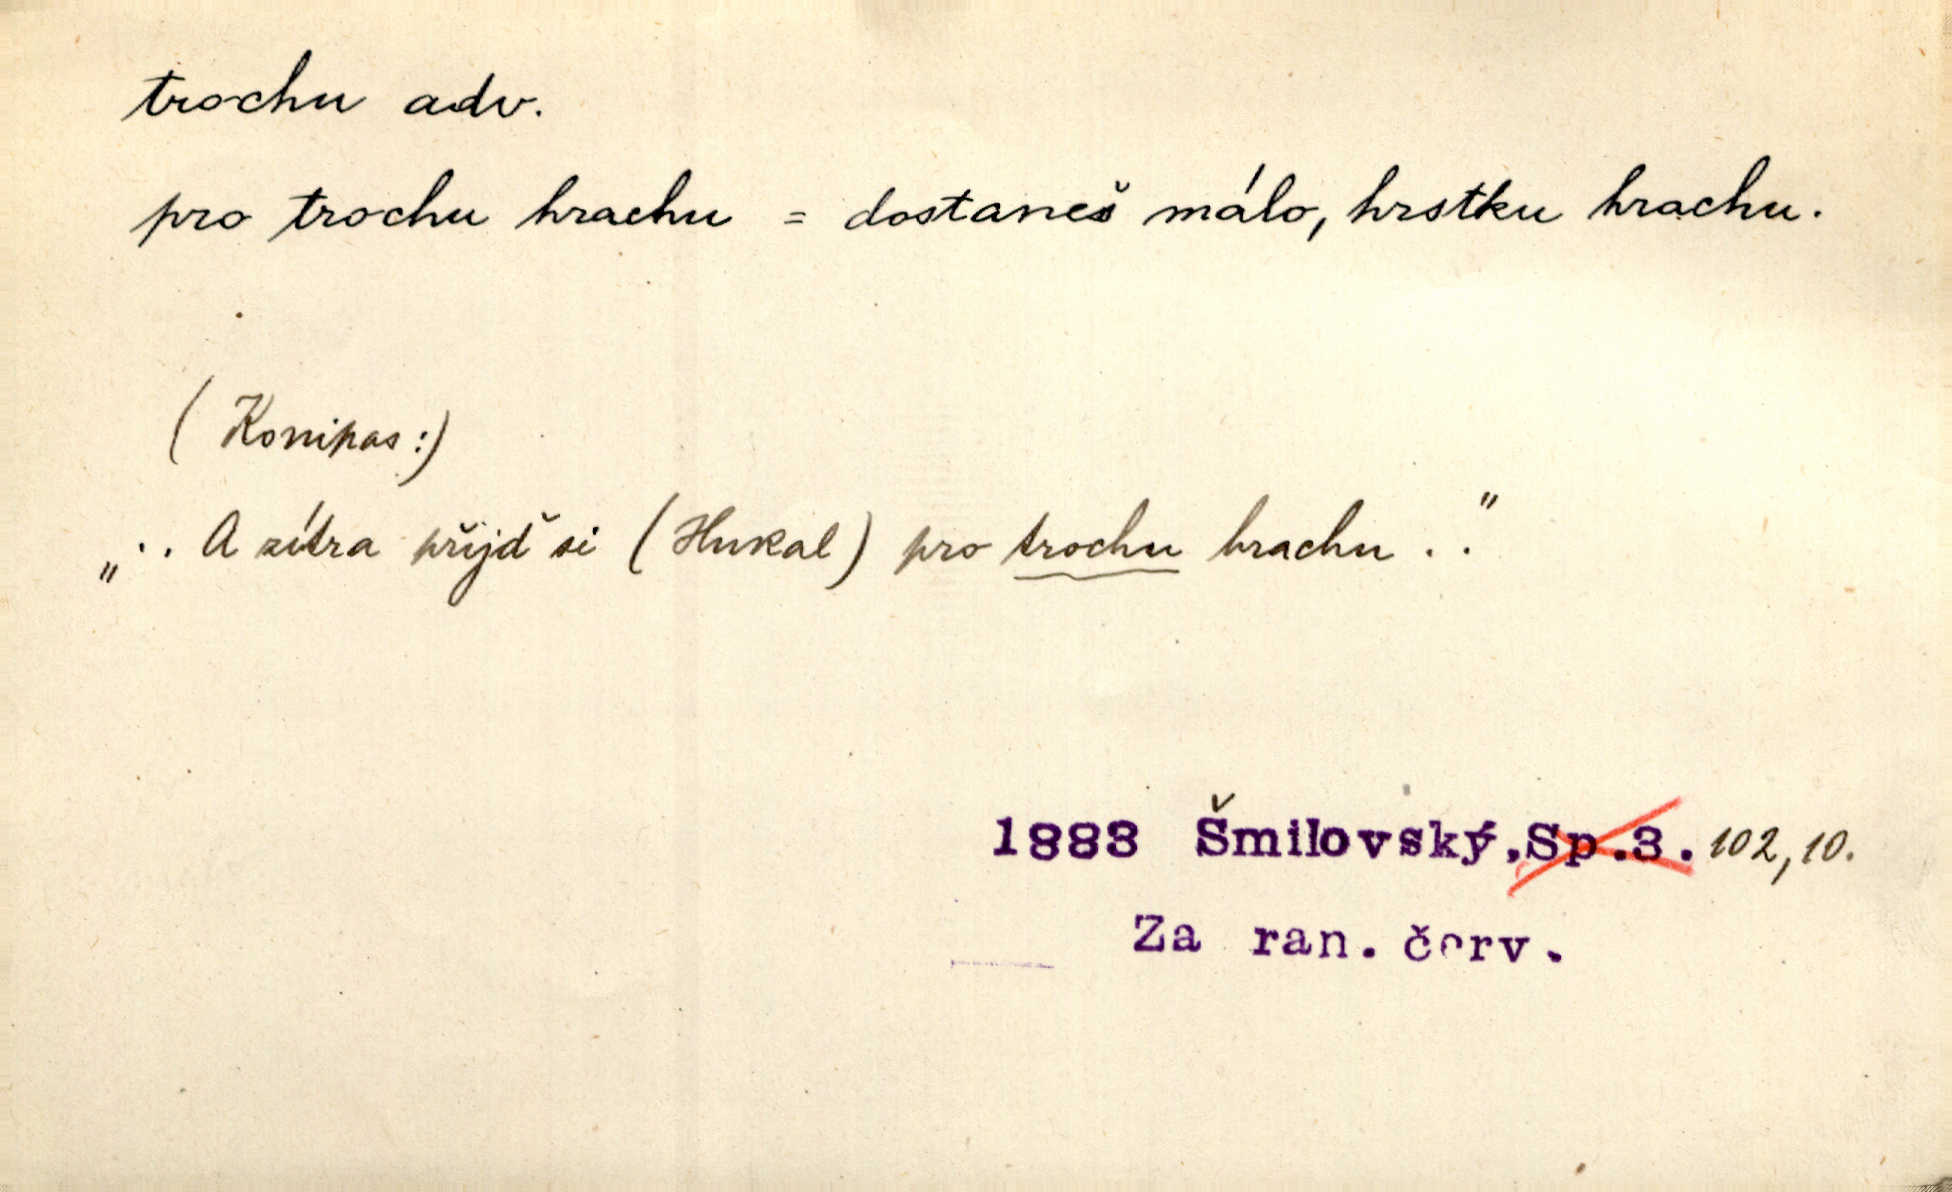 trochu adv.
pro trochu hrachu = dostaneš málo, hrstku hrachu.
(Konipas:)
„.. A zítra přijď si (Hukal) pro trochu hrachu . ."
1883 Šmilovský, Sp.3. 102,10.
Za ran. červ.